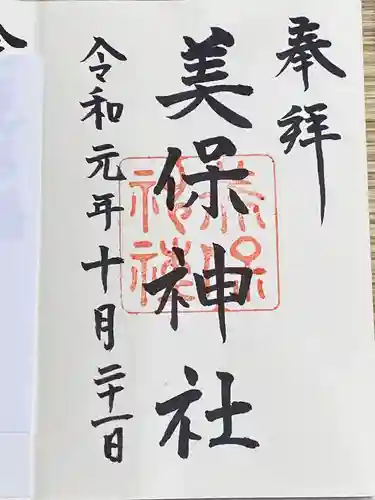 奉拝
美保神社
令和元年十月二十一日